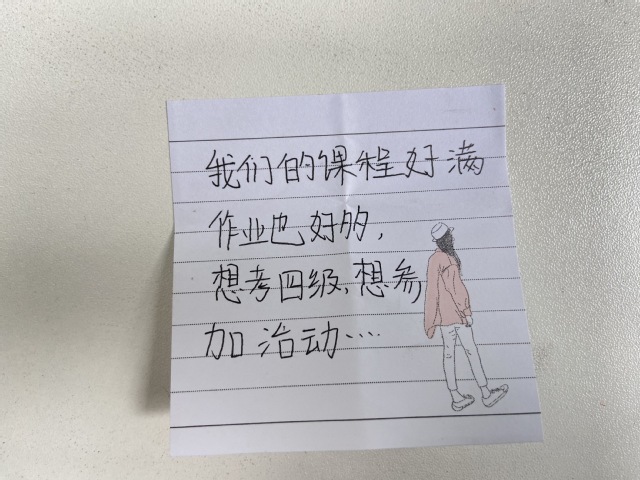 我们的课程好满
作业也好多,
想考四级,想参
加活动…